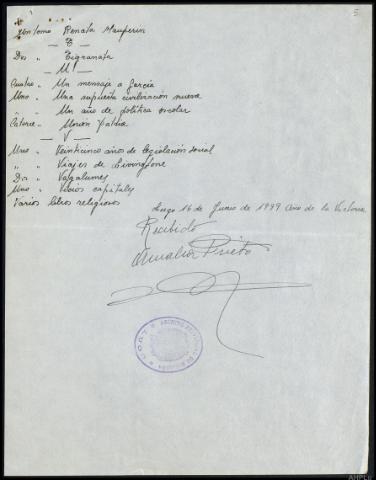 5
Un tomo Renata Mauperin
— T —
Dos " Tigranata
— U —
Cuatro " Un mensaje a García
Uno " Una supuesta civilización nueva
" " Un año de política escolar
Catorce " Unión Patria
— V —
Uno " Veinticinco años de legislación social
" " Viajes de Livingstone
Dos " Valgalumes
Uno " Vicios capitales
Varios libros religiosos
Lugo 16 de Junio de 1939 Año de la Victoria
Recibido
Amalia Prieto
LUGO
AHPLU